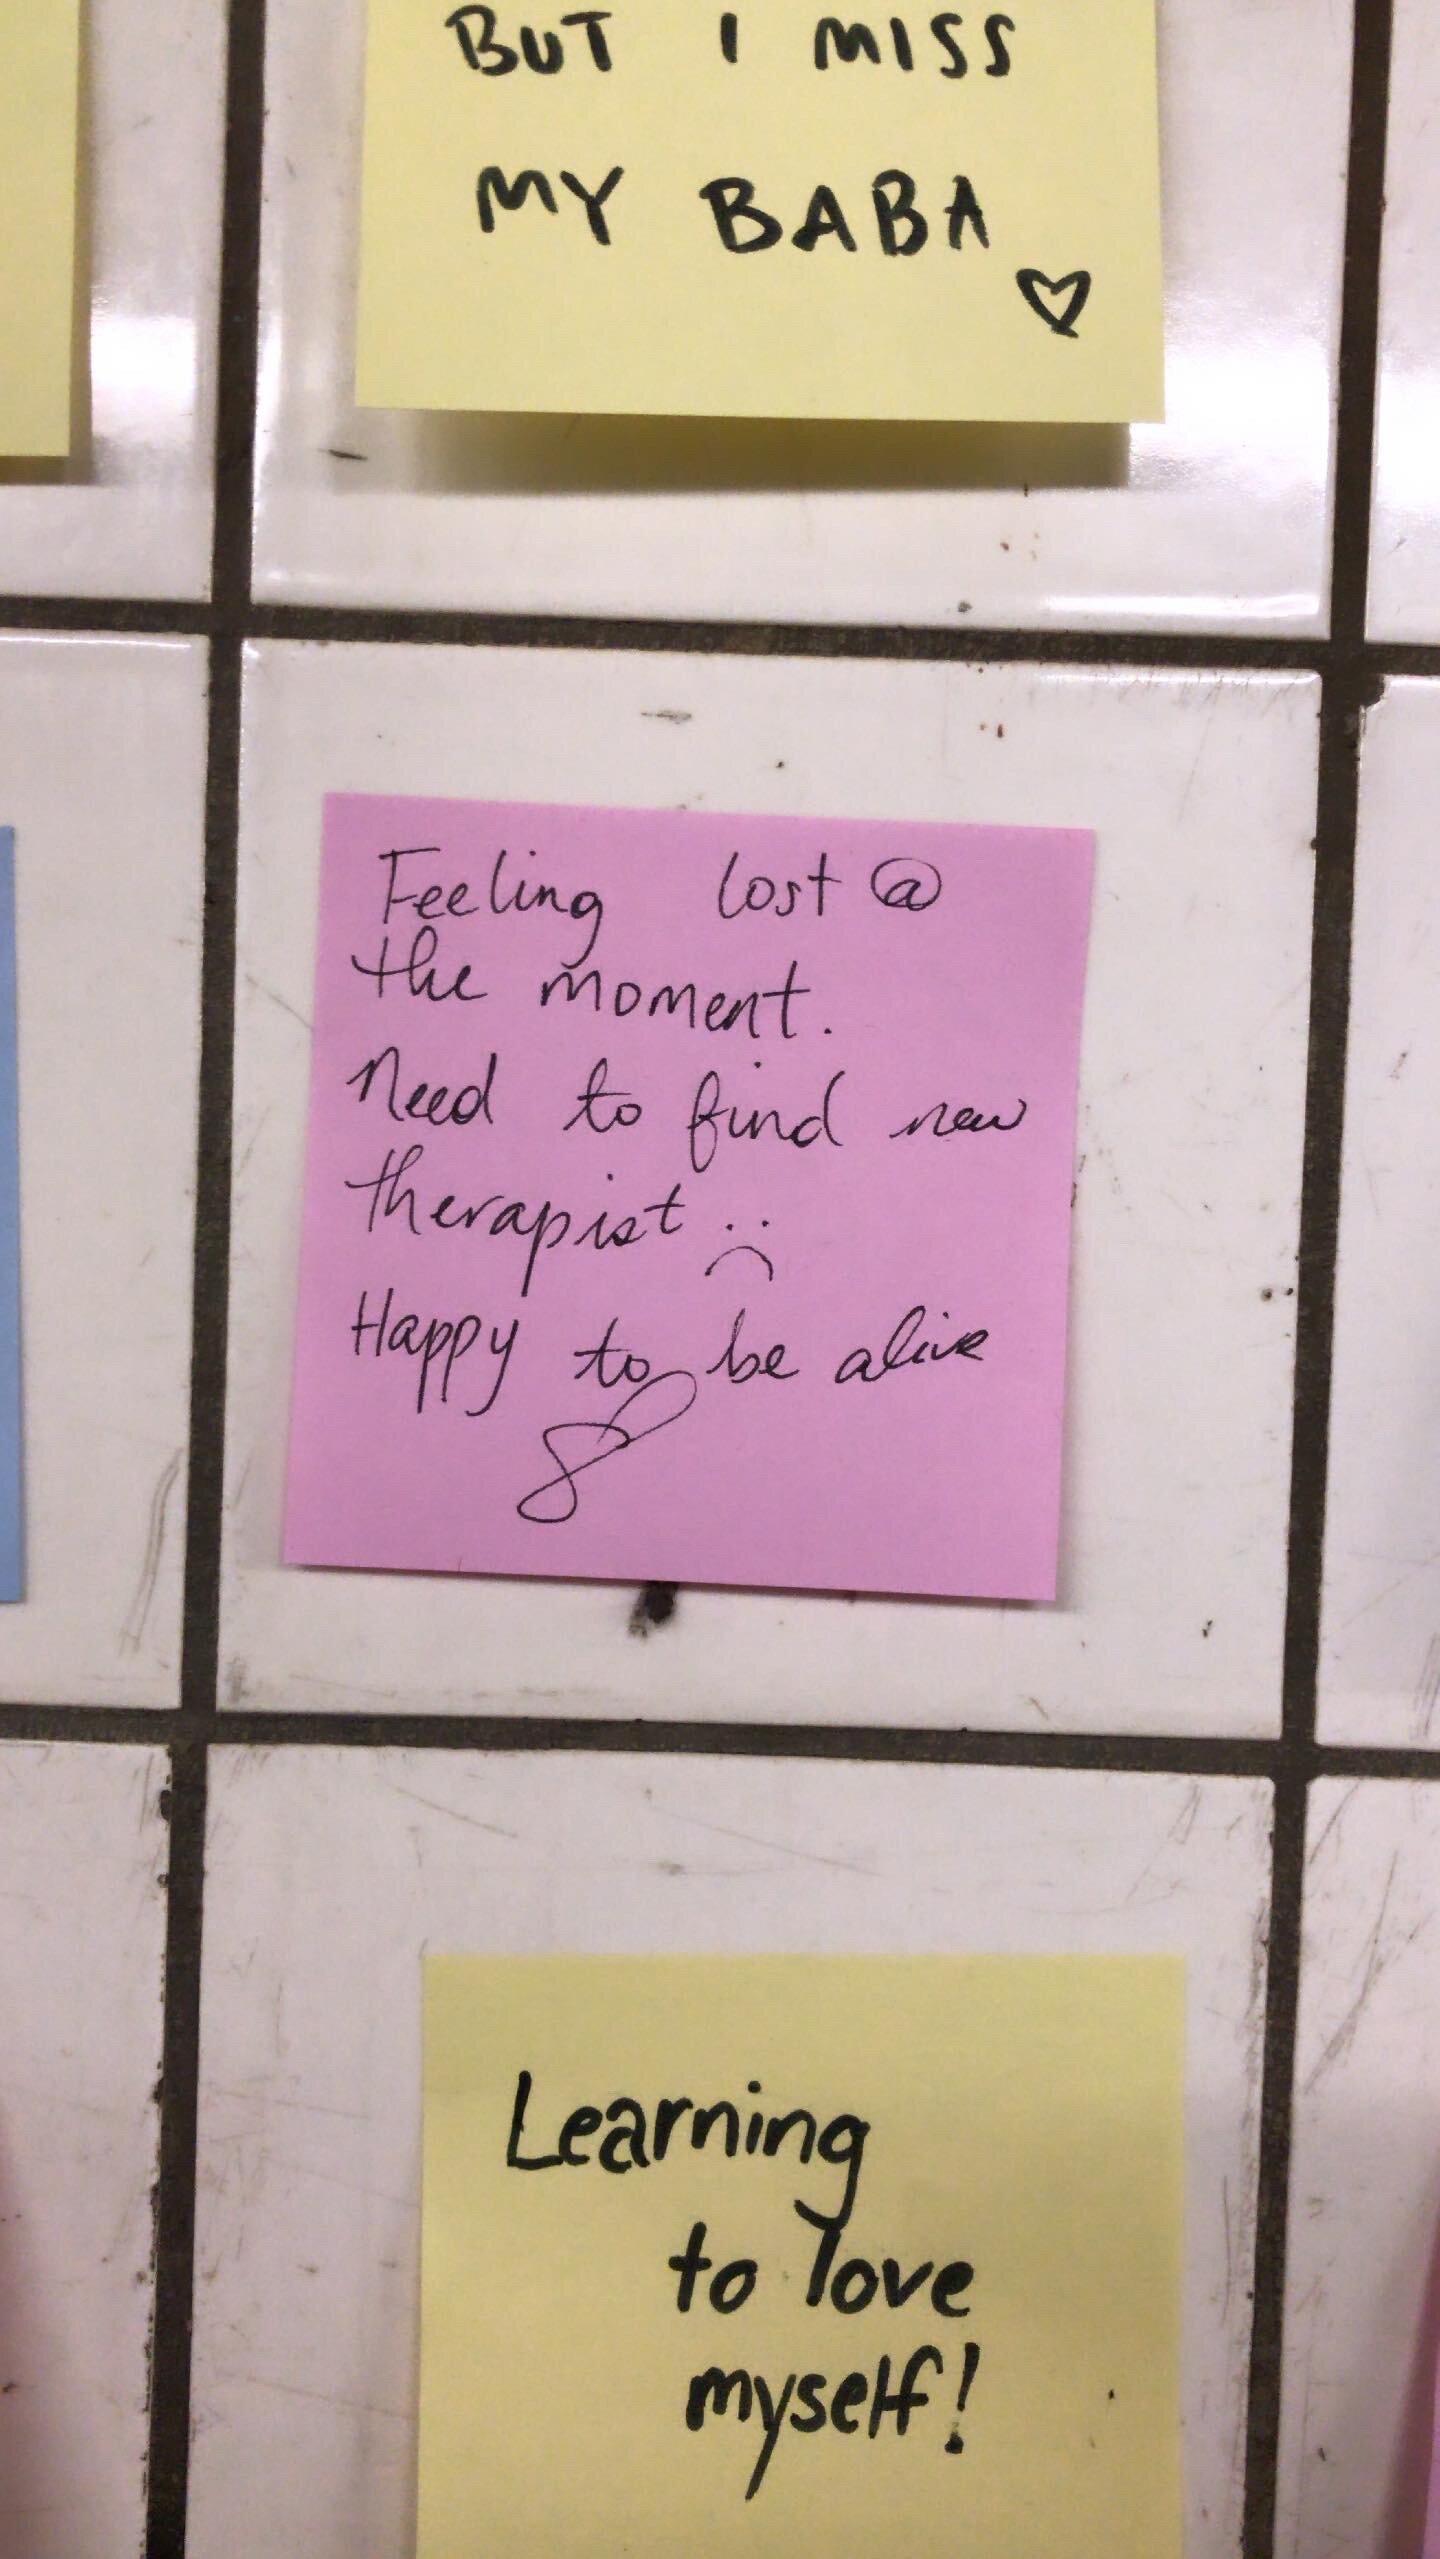 BUT I MISS
MY BABA
Feeling lost @
the moment.
Need to find new
therapist
Happy to be alive
Learning
to love
myself!